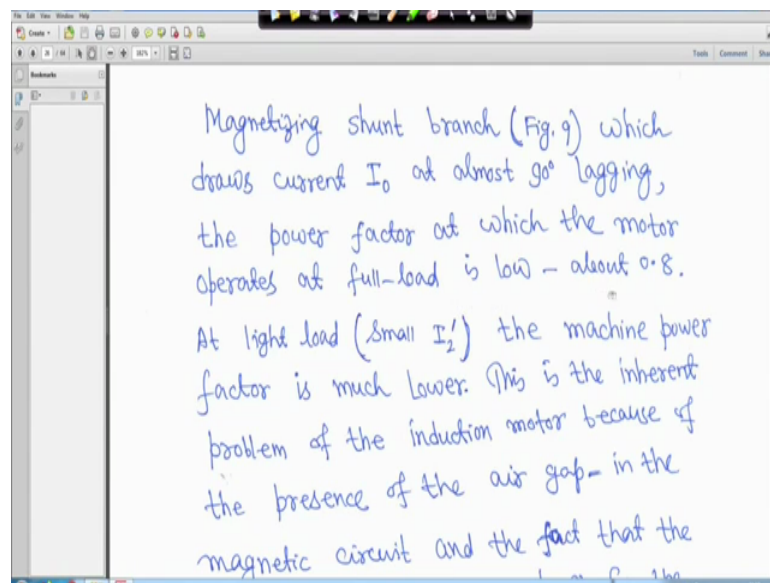 File Edit View Window Help
Create
Tools Comment
Bookmarks
Magnetizing shunt branch (Fig. 9) which
draws current I₀ at almost 90° lagging,
the power factor at which the motor
operates at full-load is low - about 0.8.
At light load (Small I₂') the machine power
factor is much lower. This is the inherent
problem of the induction motor because of
the presence of the air gap - in the
magnetic circuit and the fact that the